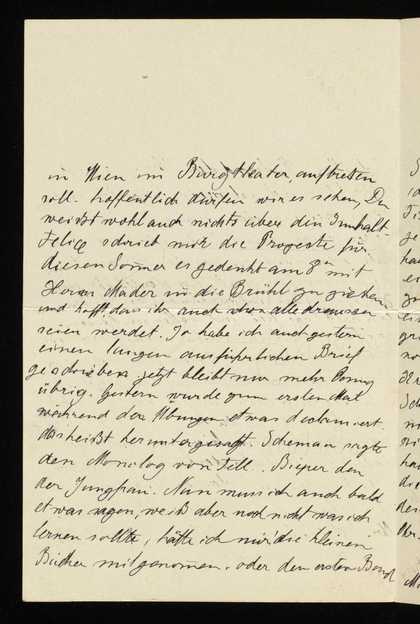 in Wien im Burgtheater, auftreten
soll. hoffentlich dürfen wir es sehen, Du
weißt wohl auch nichts über den Inhalt.
Felix schrieb mir die Projekte für
diesen Sommer er gedenkt am 8ⁿ mit
Herrn Mader in die Brühl zu ziehen
und hofft, dass ihr auch schon alle draussen
sein werdet. Ja habe ich auch gestern
einen langen ausführlichen Brief
geschrieben jetzt bleibt nur mehr
übrig. Gestern wurde zum ersten Mal
während der Übungen etwas declamiert.
das heißt heruntergesagt. sagte
den Monolog von Tell. den
der Jungfrau. Nun muss ich auch bald
etwas sagen, weiß aber noch nicht was ich
lernen sollte, hätte ich nur die kleinen
Bücher mitgenommen. oder den ersten Band